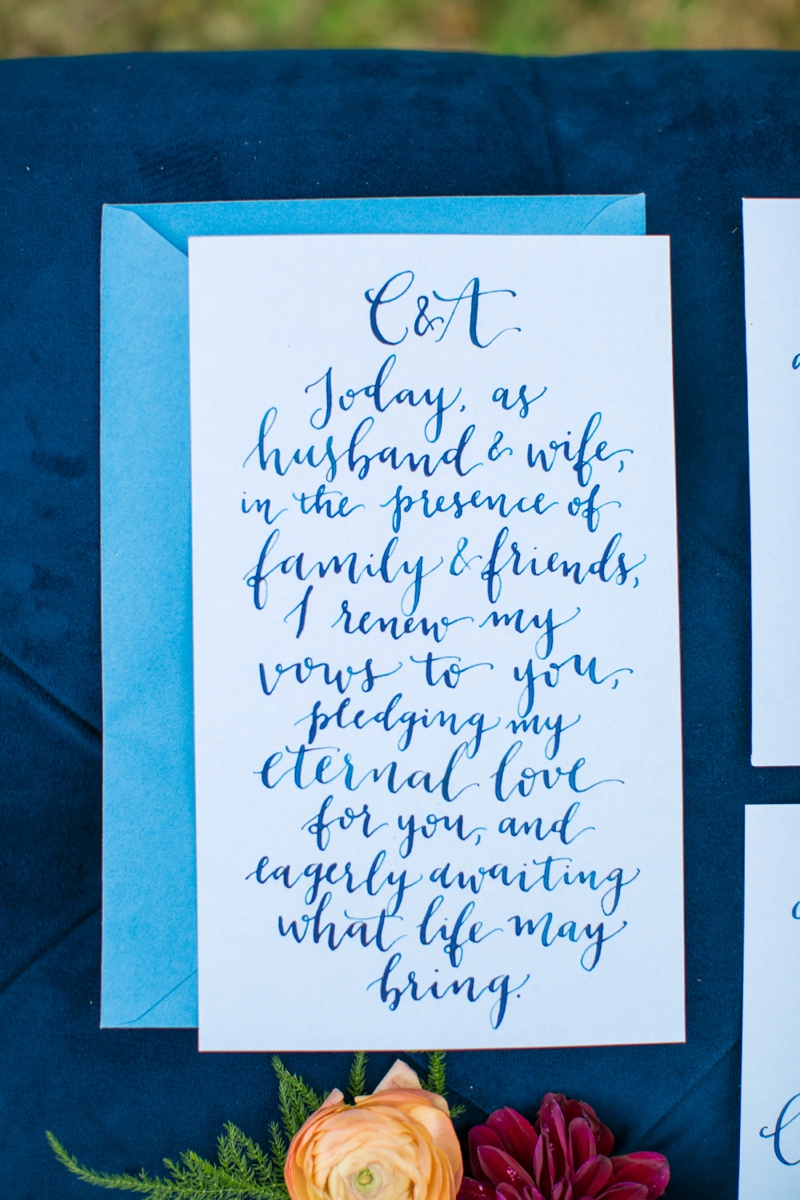 C&A
Today, as
husband & wife,
in the presence of
family & friends,
I renew my
vows to you,
pledging my
eternal love
for you, and
eagerly awaiting
what life may
bring.